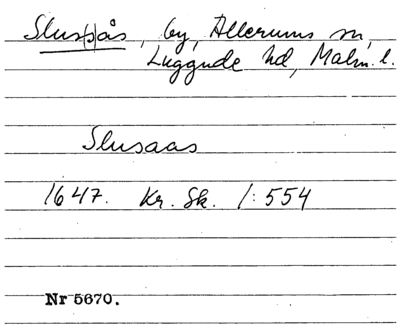 Slus(s)ås, by, Allerums sn,
Luggude hd, Malm. l.
Slusaas
1647. Kr. Sk. 1:554
Nr 5670.